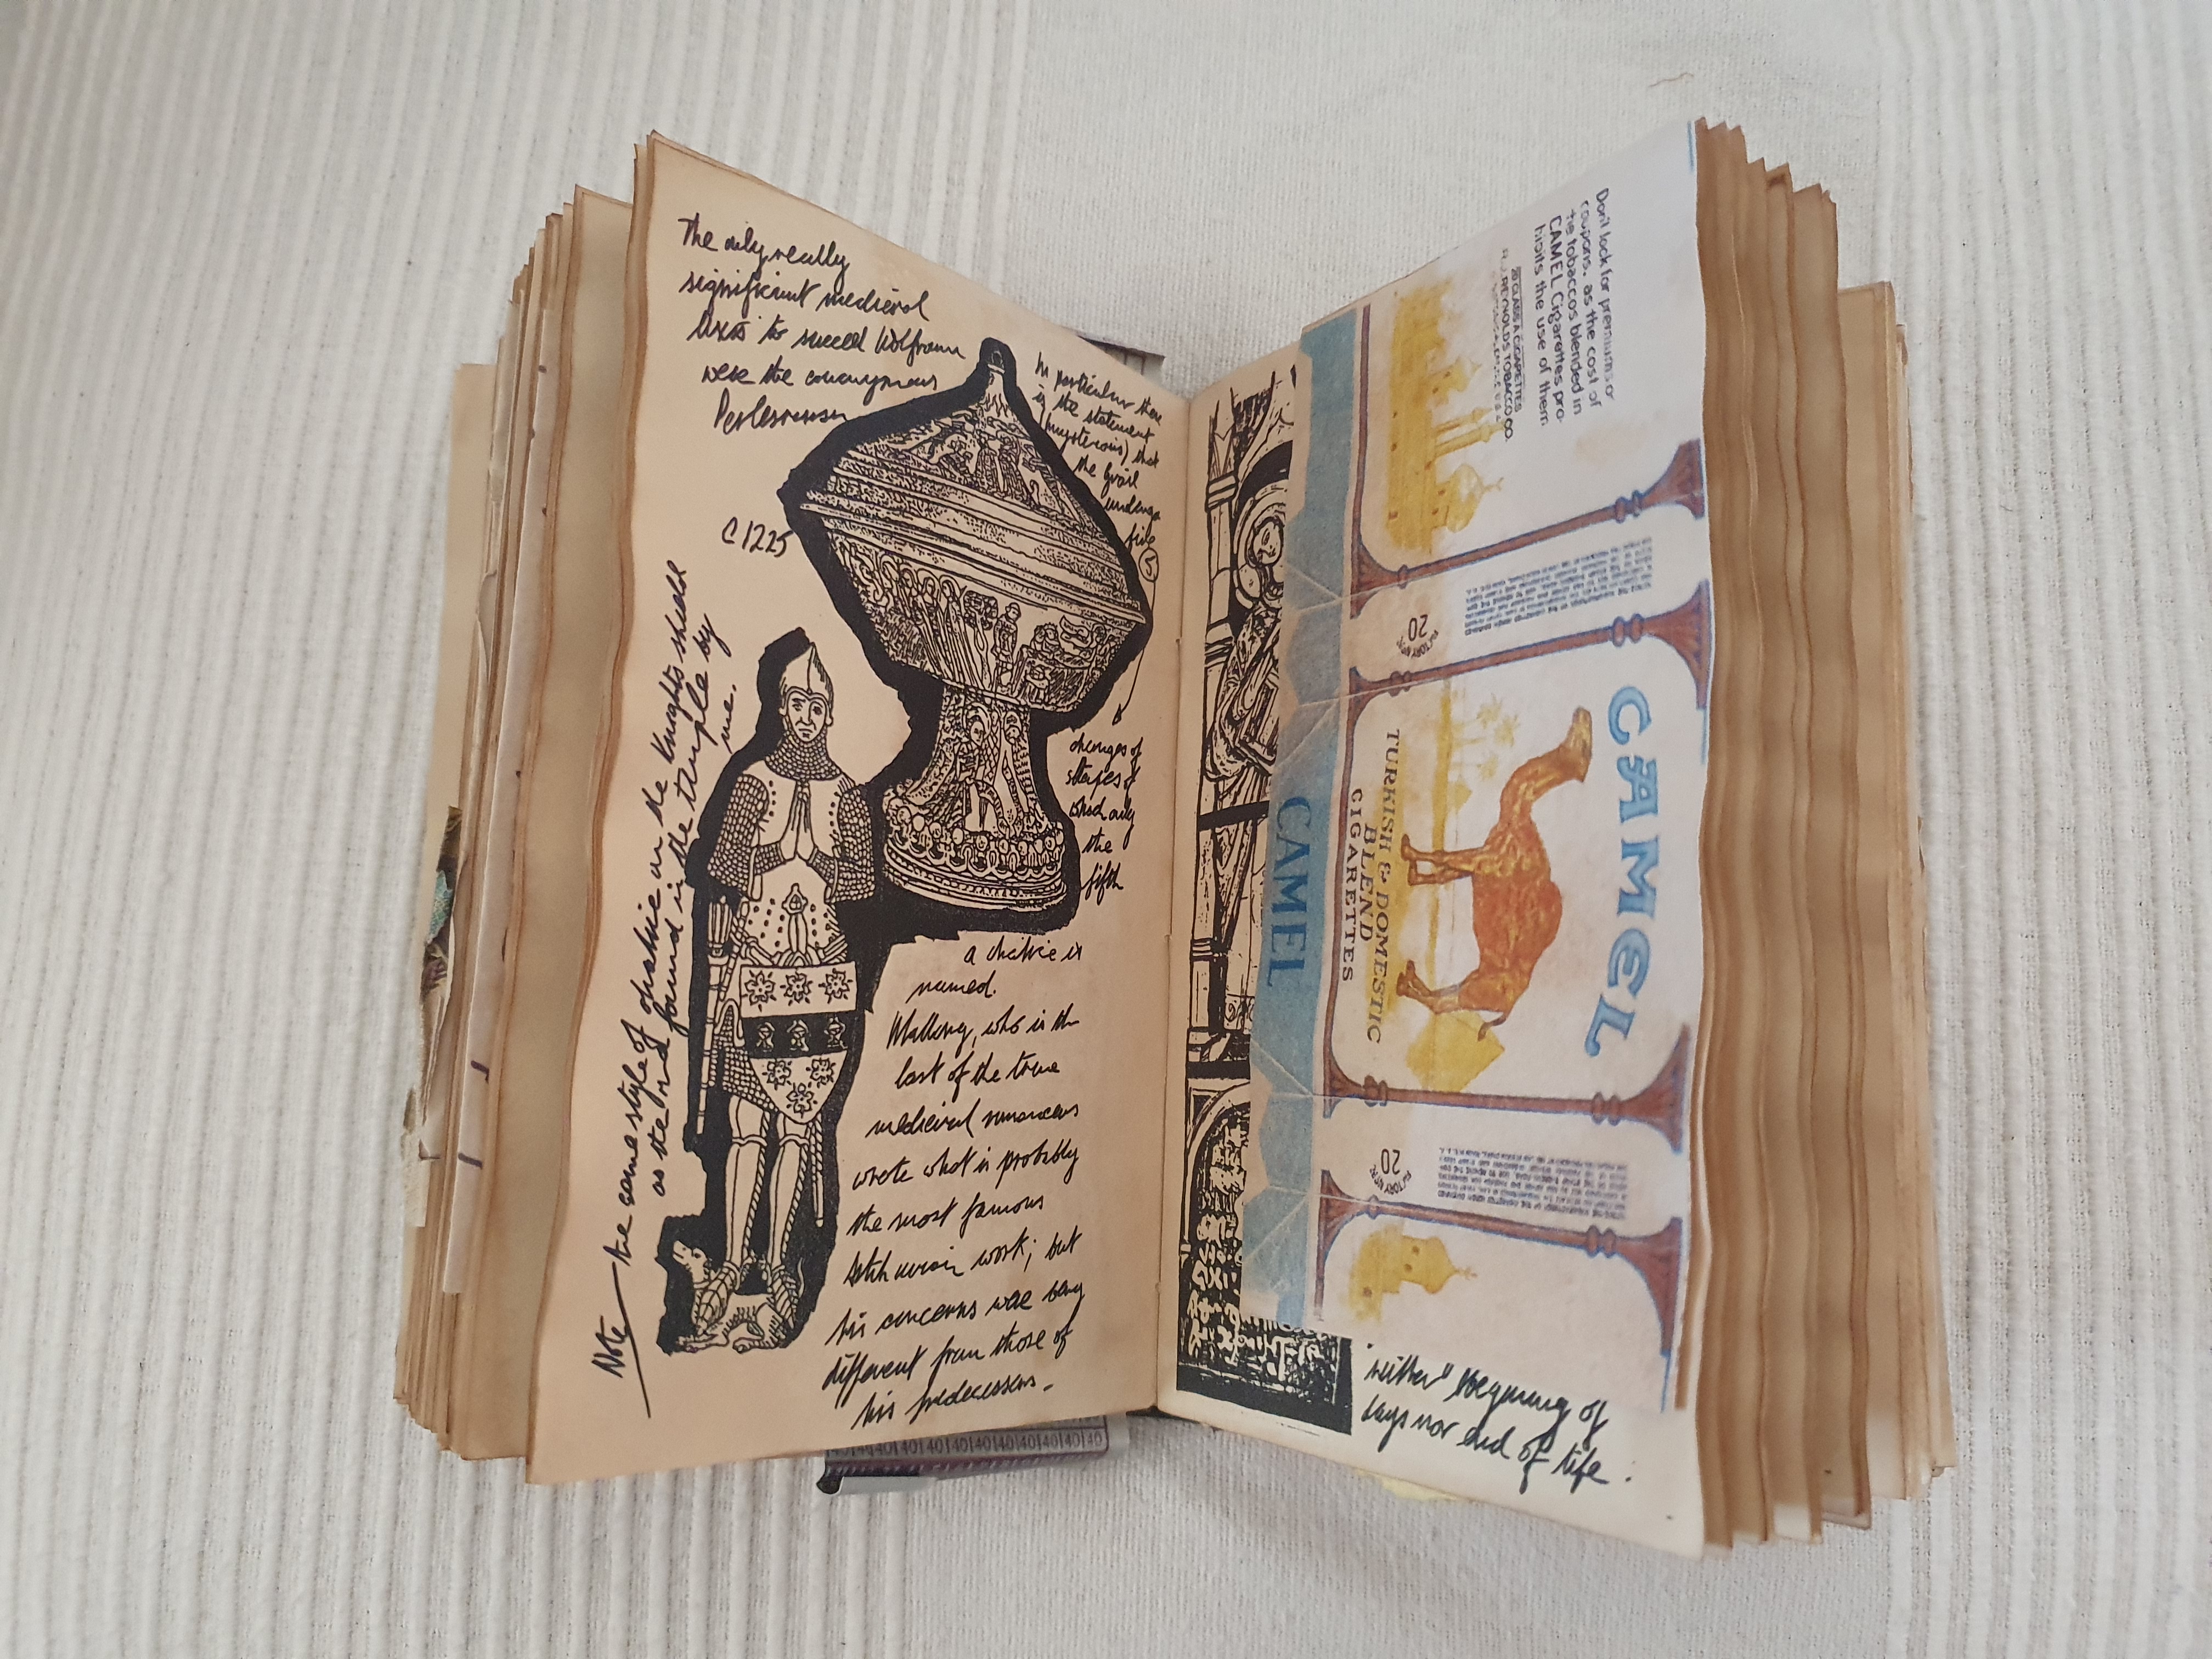 The only really
significant medieval
texts to succeed Wolfram
were the anonymous
Perlesvaus
C 1225
In particular there
is the statement
(mysterious) that
the Grail
undergo
five
5
changes of
shapes of
which only
the
fifth
a chalice is
named.
Mallory, who is the
last of the true
medieval romancers
wrote what is probably
the most famous
Arthurian work; but
his concerns were very
different from those of
his predecessors.
Note the same style of chalice on the Knights shield
as the one found in the temple by
me.
Don't look for premiums or
coupons, as the cost of
the tobaccos blended in
CAMEL Cigarettes pro-
hibits the use of them
20 CLASS A CIGARETTES
R.J. REYNOLDS TOBACCO CO.
FACTORY
20
CAMEL
TURKISH & DOMESTIC
BLEND
CIGARETTES
CAMEL
FACTORY
20
neither" begining of
days nor end of life.